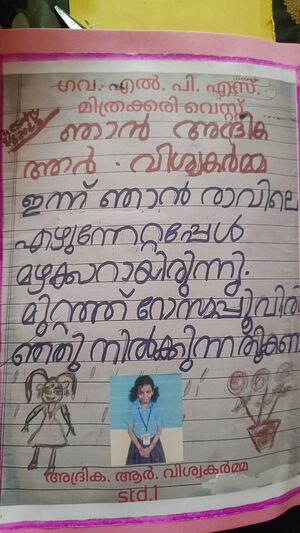 ഗവ. എൽ. പി. എസ്.
മിത്രക്കരി വെസ്റ്റ്
ഞാൻ അദ്രിക
ആർ. വിശ്വകർമ്മ
ഇന്ന് ഞാൻ രാവിലെ
എഴുന്നേറ്റപ്പേൾ
മഴക്കാറായിരുന്നു.
മുറ്റത്ത് റോസാപ്പൂവിരി
ഞ്ഞു നിൽക്കുന്നതുകണ്ടു
അദ്രിക. ആർ. വിശ്വകർമ്മ
std.I